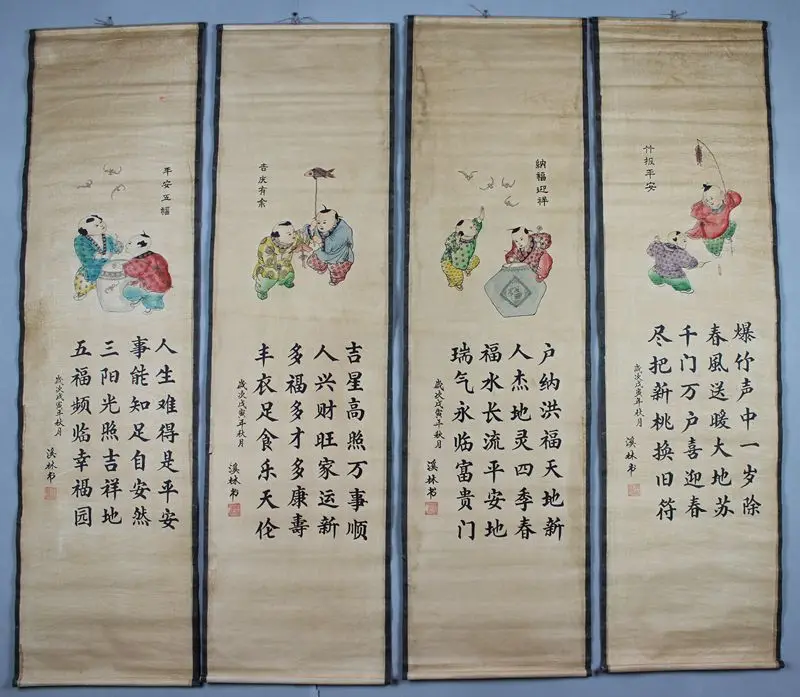 竹报平安
爆竹声中一岁除
春風送暖大地苏
千门万户喜迎春
尽把新桃换旧符
歲次戊寅年秋月
溪林书
納福迎祥
户纳洪福天地新
人杰地灵四季春
福水长流平安地
瑞气永临富贵门
歲次戊寅年秋月
溪林书
吉庆有余
吉星高照万事顺
人兴财旺家运新
多福多才多康壽
丰衣足食乐天伦
歲次戊寅年秋月
溪林书
平安五福
人生难得是平安
事能知足自安然
三阳光照吉祥地
五福频临幸福园
歲次戊寅年秋月
溪林书